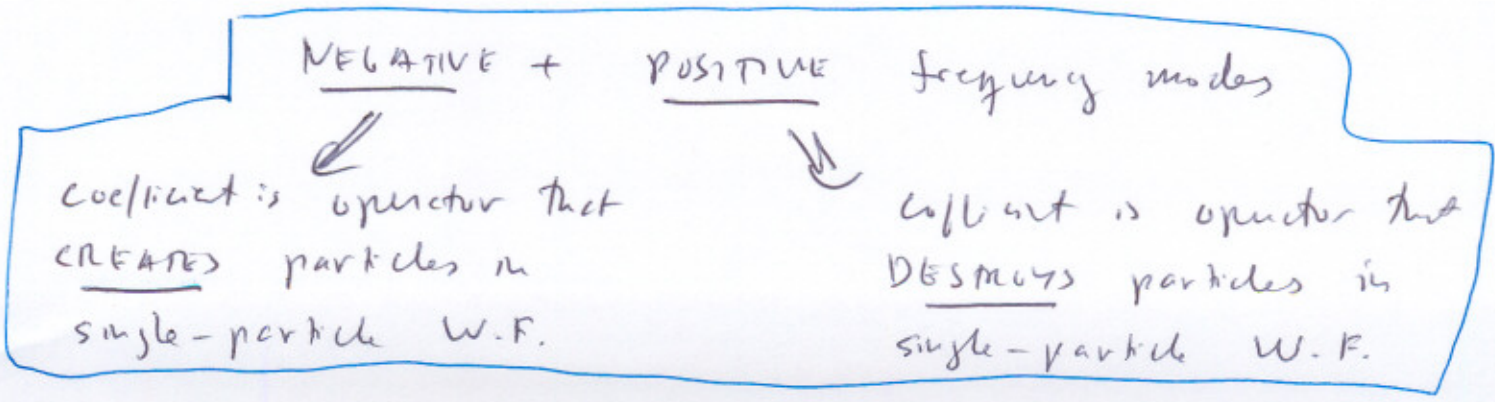 NEGATIVE + POSITIVE frequency modes
Coefficient is operator that
CREATES particles in
single-particle W.F.
Coefficient is operator that
DESTROYS particles in
single-particle W.F.